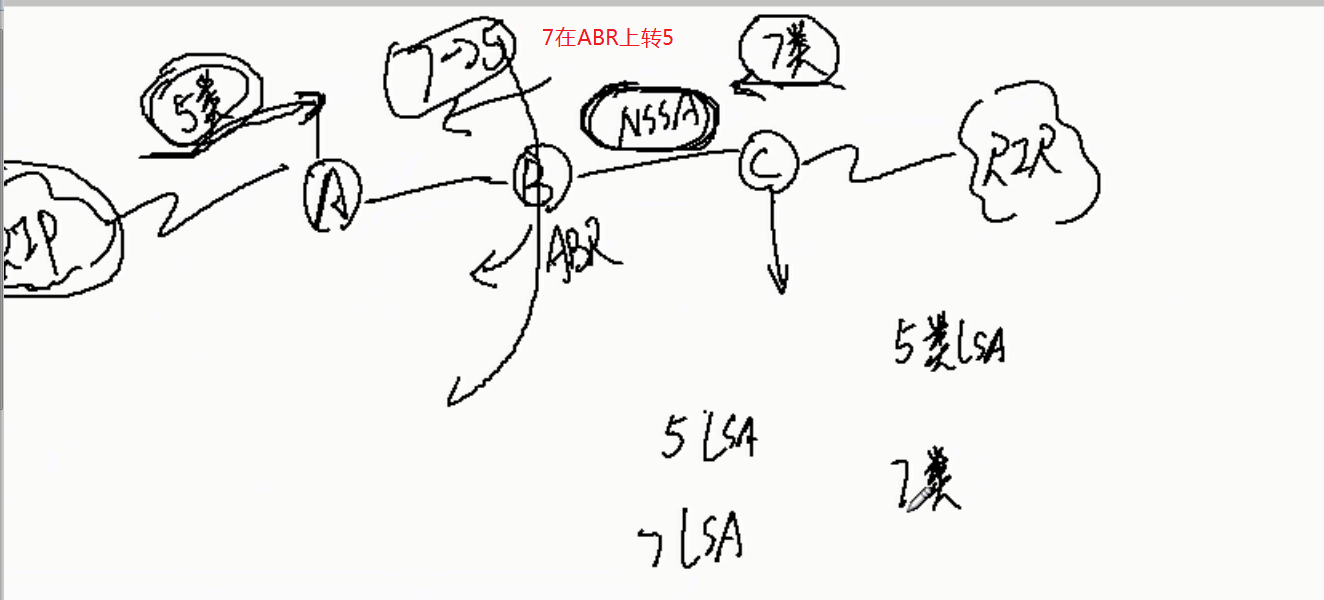 7在ABR上转5
7->5
7类
5类
NSSA
A
B
C
RIP
ABR
5类LSA
5 LSA
7类
7 LSA